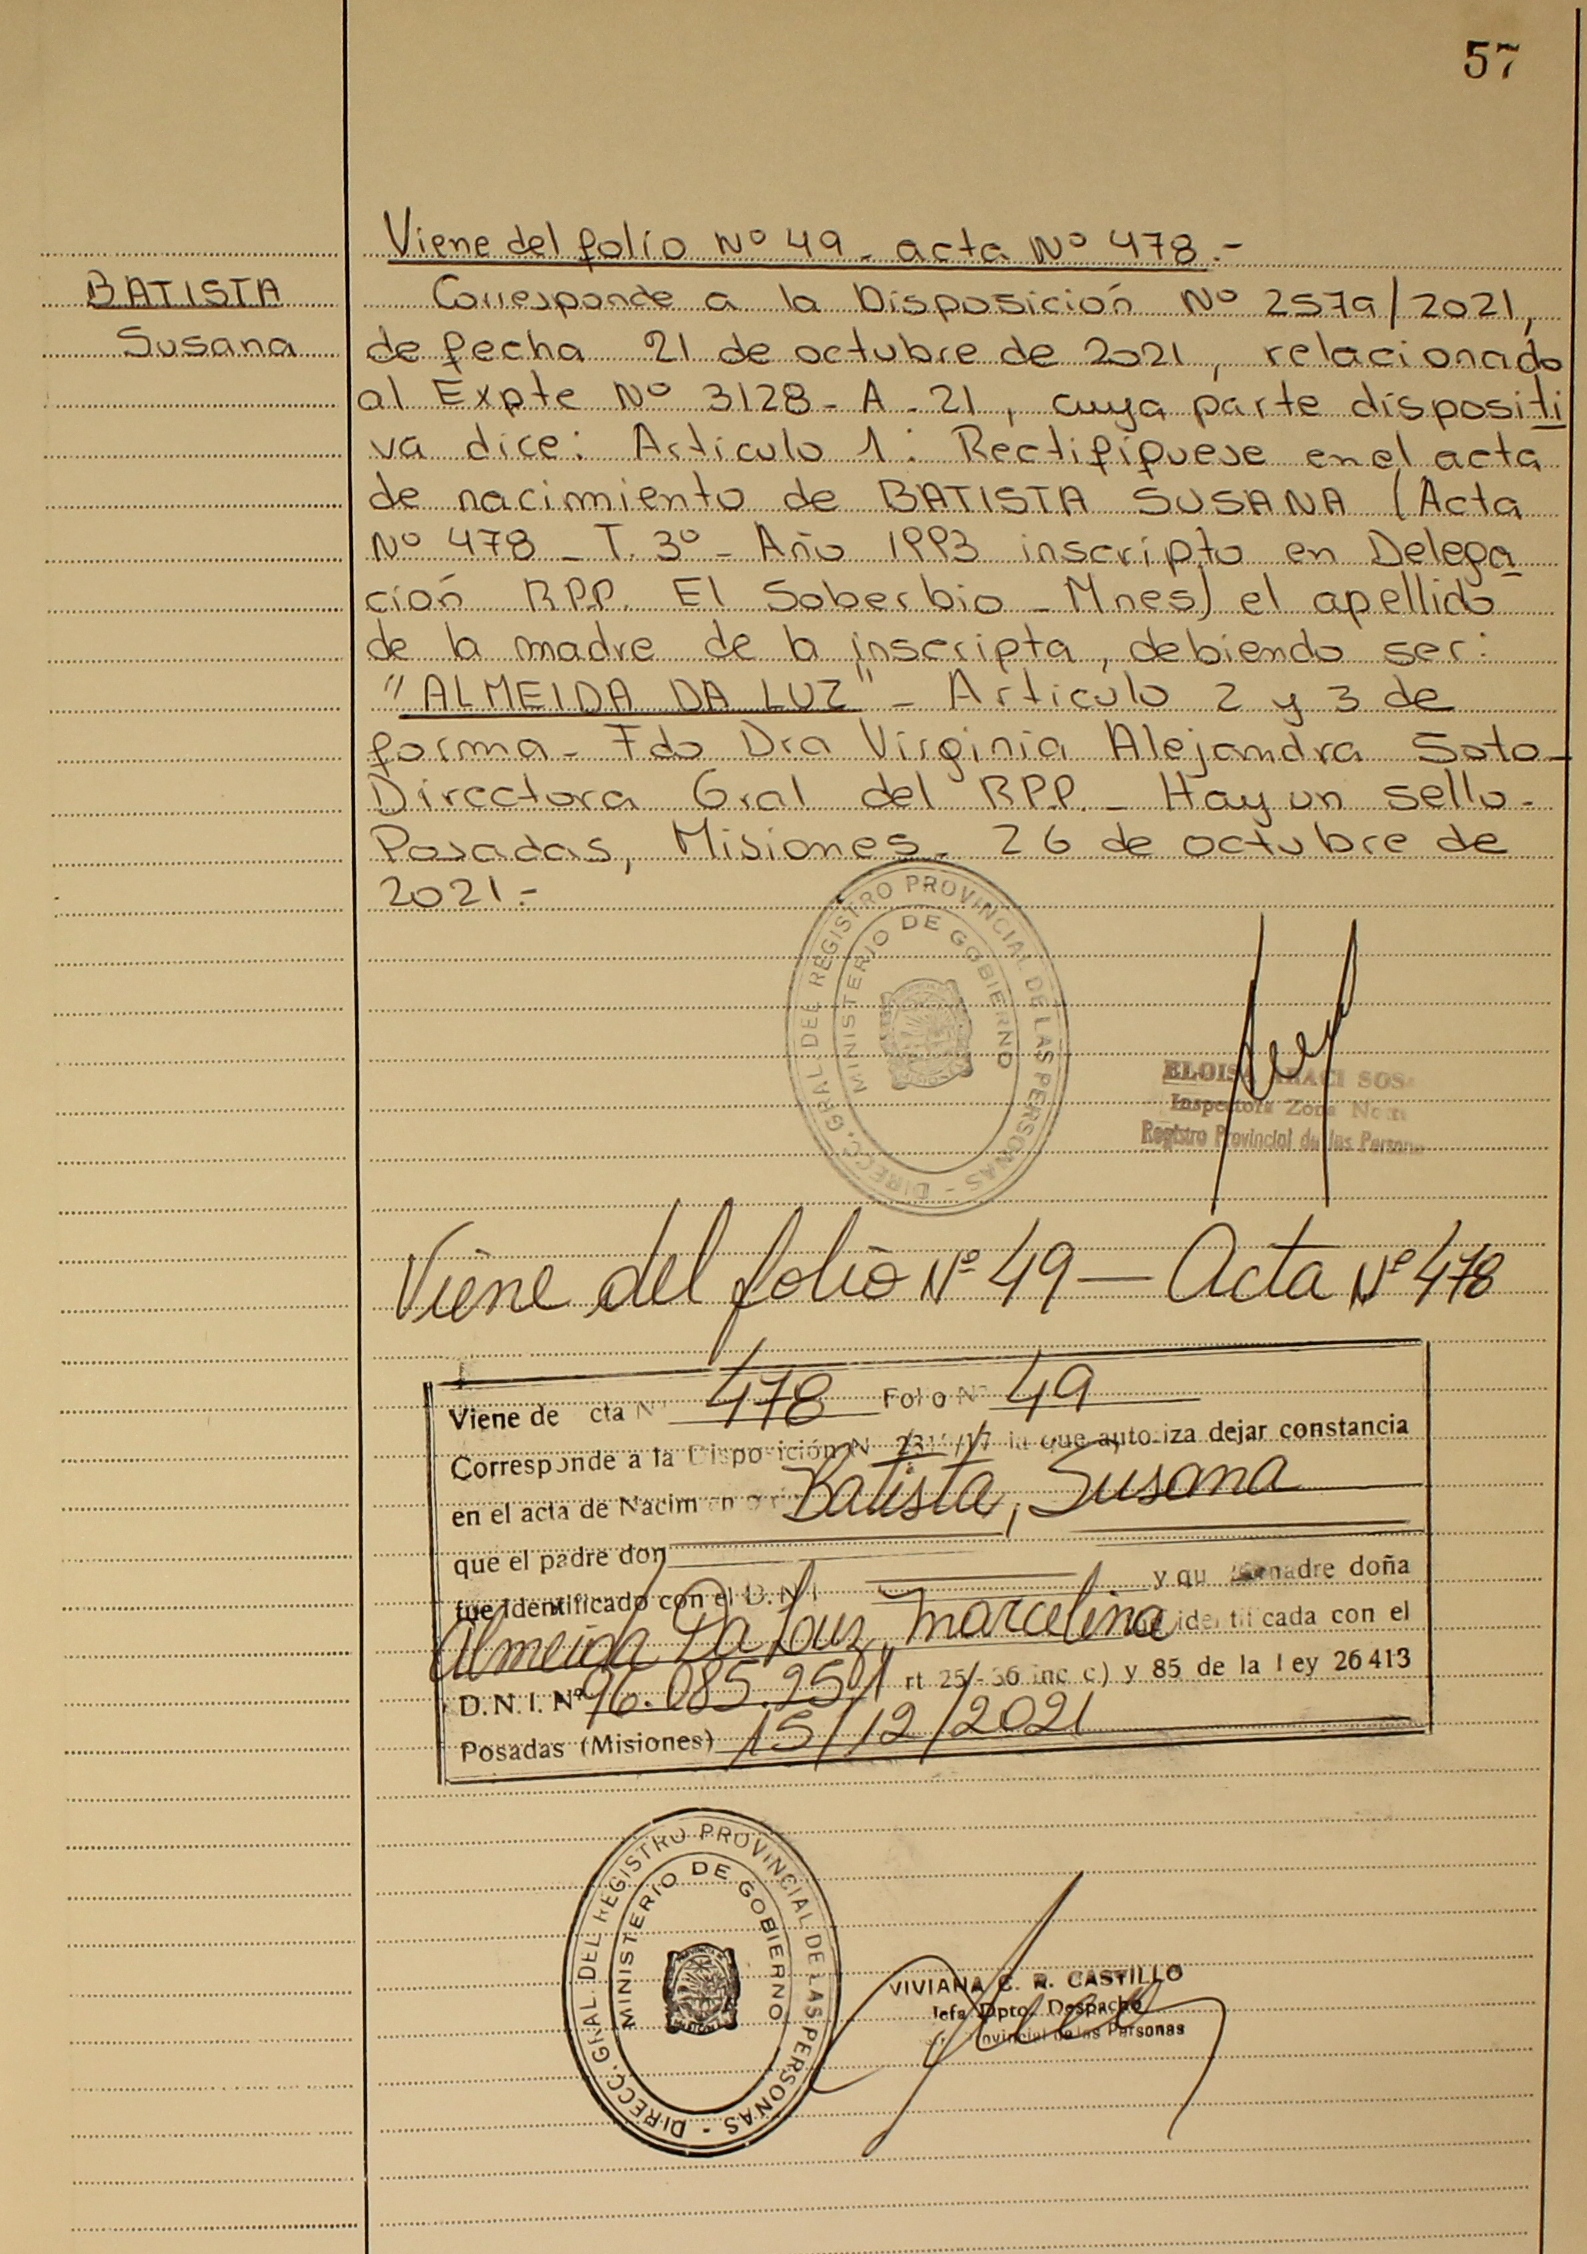 57
BATISTA
Susana
Viene del folio Nº 49 - acta Nº 478.-
Corresponde a la Disposición Nº 2579/2021,
de fecha 21 de octubre de 2021, relacionado
al Expte Nº 3128 - A - 21, cuya parte dispositi
va dice: Articulo 1: Rectifíquese en el acta
de nacimiento de BATISTA SUSANA (Acta
Nº 478 - T. 3º - Año 1993 inscripto en Delega
ción RPP. El Soberbio - Mnes) el apellido
de la madre de la inscripta, debiendo ser:
"ALMEIDA DA LUZ" - Articulo 2 y 3 de
forma - Fdo Dra Virginia Alejandra Soto -
Directora Gral del RPP. - Hay un sello -
Posadas, Misiones - 26 de octubre de
2021.-
DIRECC. GRAL. DEL REGISTRO PROVINCIAL DE LAS PERSONAS -
MINISTERIO DE GOBIERNO
ELOISA
Inspectora Zona
Registro Provincial de las Persona
Viene del folio Nº 49 — Acta Nº 478
Viene de cta N 478 Folio Nº 49
Corresponde a la Disposición N la que autoriza dejar constancia
en el acta de Batista, Susana
que el padre don
fue identificado con el D.N.I y qu madre doña
Almeida Da Luz, Marcelina identificada con el
D.N.I. Nº 96.085.251 rt 25 - 36 inc c) y 85 de la ley 26413
Posadas (Misiones) 15/12/2021
DIRECC. GRAL. DEL REGISTRO PROVINCIAL DE LAS PERSONAS -
MINISTERIO DE GOBIERNO
VIVIANA C. R. CASTILLO
Jefa Dpto. Despacho
de las Personas